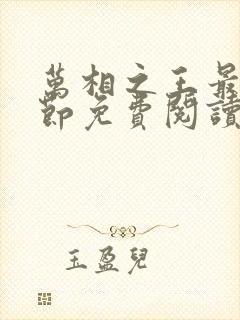 萬相之王最
節免費閱讀
玉盈兒